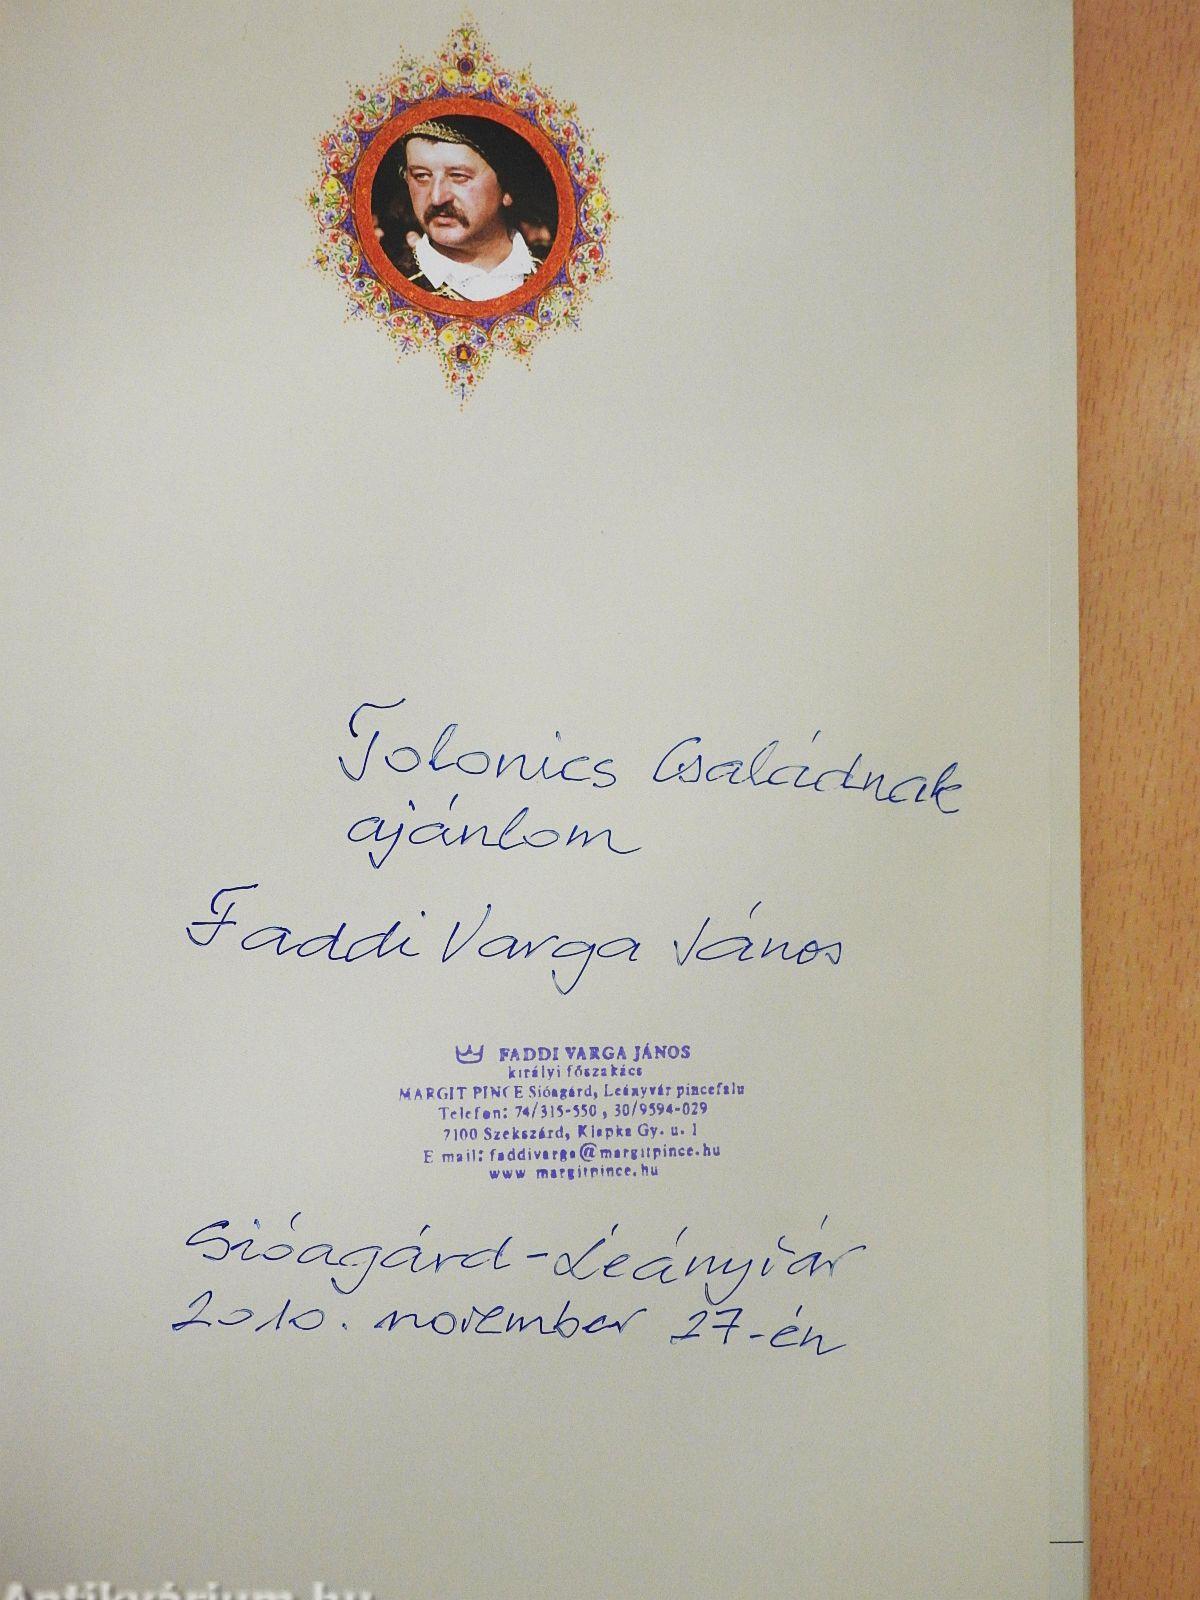 Tolonics Családnak
ajánlom
Faddi Varga János
FADDI VARGA JÁNOS
királyi főszakács
MARGIT PINCE Sióagárd, Leányvár pincefalu
Telefon: 74/315-550, 30/9594-029
7100 Szekszárd, Klapka Gy. u. 1
E mail: faddivarga@margitpince.hu
www margitpince.hu
Sióagárd-Leányvár
2010. november 27-én
Antikvárium.hu